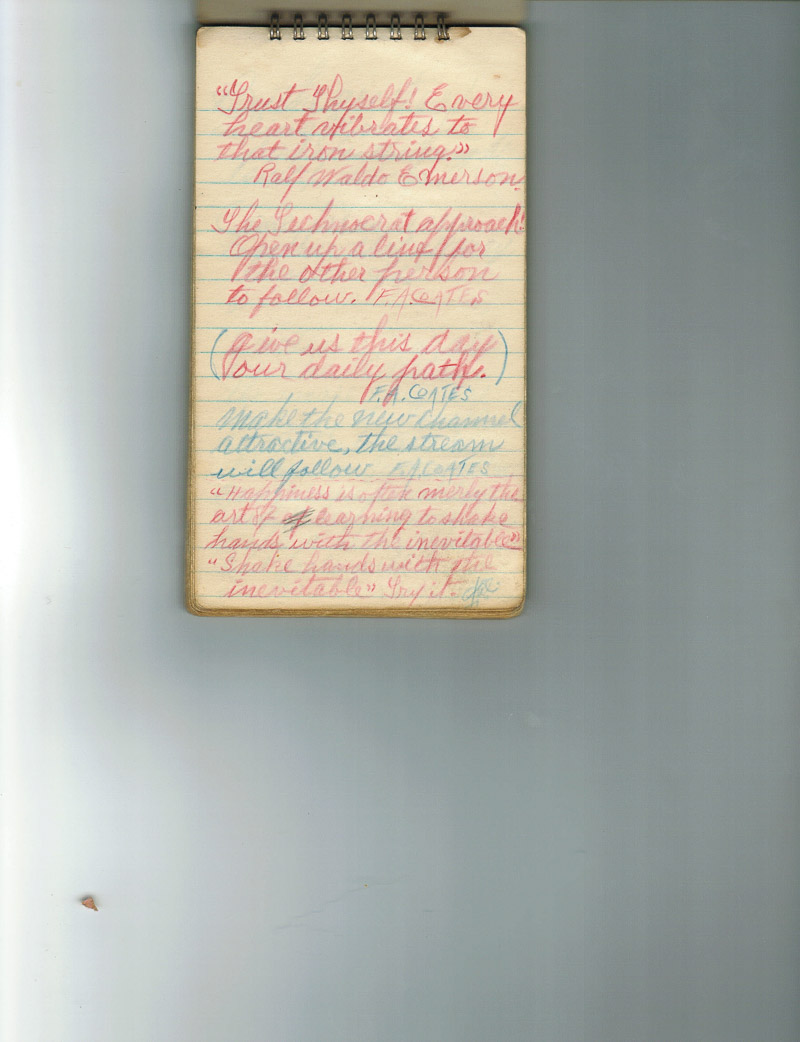 "Trust Thyself! Every
heart vibrates to
that iron string."
Ralf Waldo Emerson.
The Technocrat approach!
Open up a line for
the other person
to follow. F.A.COATES
(give us this day
our daily path.)
F.A. COATES
Make the new channel
attractive, the stream
will follow F.A.COATES
"Happiness is often merly the
art of learning to shake
hands with the inevitable"
"Shake hands with the
inevitable" Try it.